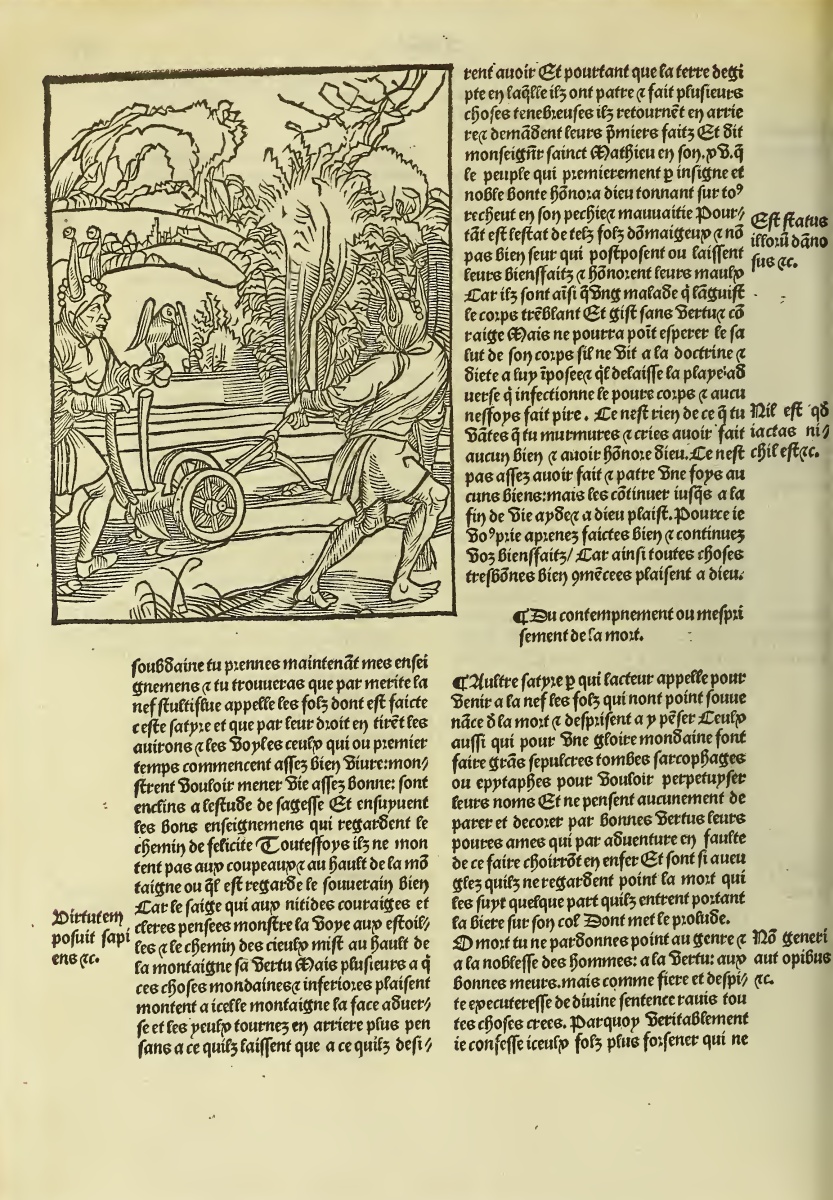 soubdaine tu prennes maintenāt mes ensei
gnemens ⁊ tu trouueras que par merite la
nef stultiflue appelle les folz dont est faicte
ceste satyre et que par leur droit en tirēt les
auirons ⁊ les voyles ceulx qui ou premier
temps commencent assez bien viure: mon//
strent vouloir mener vie assez bonne: sont
enclins a lestude de sagesse Et ensuyuent
les bons enseignemens qui regardent le
chemin de felicite Toutessoys ilz ne mon
tent pas aux coupeaux ⁊ au hault de la mō
taigne ou q̄l est regarde le souuerain bien
Car le saige qui aux nitides couraiges et
cleres pensees monstre la voye aux estoil//
les ⁊ le chemin des cieulx mist au hault de
la montaigne sa vertu Mais plusieurs a q̄
ces choses mondaines ⁊ inferiores plaisent
montent a icelle montaigne la face aduer//
se et les yeulx tournez en arriere plus pen
sans a ce quilz laissent que a ce quilz desi//
Virtutem
posuit sapi
ens ⁊c.
rent auoir Et pourtant que la terre degi
pte en laq̄lle ilz ont patre ⁊ fait plusieurs
choses tenebreuses ilz retournēt en arrie
re ⁊ demādent leurs p̄miers faitz Et dit
monseign̄r sainct Mathieu en son. xv. q̄
le peuple qui premierement p insigne et
noble bonte hōnora dieu tonnant sur toꝰ
recheut en son pechie ⁊ mauuaitie Pour//
tāt est lestat de telz folz dōmaigeux ⁊ nō
pas bien seur qui postposent ou laissent
leurs bienssaitz ⁊ hōnorent leurs maulx
Car ilz sont aīsi q̄ vng malade q̄ lāguist
le corps trēblant Et gist sans vertu ⁊ cō
raige Mais ne pourra poīt esperer le sa
lut de son corps sil ne vit a la doctrine ⁊
diete a luy īposee ⁊ q̄l delaisse la playe ad
uerse q̄ infectionne le poure corps ⁊ aucu
nessoys fait pire. Ce nest rien de ce q̄ tu
vātes q̄ tu murmures ⁊ cries auoir fait
aucun bien ⁊ auoir hōnore dieu. Ce nest
pas assez auoir fait ⁊ patre vne foys au
cuns biens: mais les cōtinuer iusq̄s a la
fin de vie ayde ⁊ a dieu plaist. Pource ie
voꝰ prie aprenez faictes bien ⁊ continuez
voz bienssaitz/ Car ainsi toutes choses
tresbōnes bien ꝯmēcees plaisent a dieu.
Est status
illorū dāno
sus ⁊c.
Nil est qd̄
iactas ni//
chil est ⁊c.
¶ Du contempnement ou mespri
sement de la mort.
¶ Aultre satyre p̱ qui lacteur appelle pour
venir a la nef les folz qui nont point souue
nāce d̄ la mort ⁊ desprisent a y pēser Ceulx
aussi qui pour vne gloire mondaine font
faire grās sepulcres tombes sarcophages
ou epytaphes pour vouloir perpetuyser
leurs noms Et ne pensent aucunement de
parer et decorer par bonnes vertus leurs
poures ames qui par aduenture en faulte
de ce faire choirrōt en enfer Et sont si aueu
glez quilz ne regardent point la mort qui
les suyt quelque part quilz entrent portant
la biere sur son col Dont met le prolude.
O mort tu ne pardonnes point au genre ⁊
a la noblesse des hommes: a la vertu: aux
bonnes meurs. mais comme fiere et despi//
te executeresse de diuine sentence rauis tou
tes choses crees. Parquoy veritablement
ie confesse iceulx folz plus forsener qui ne
Nō generi
aut opibus
⁊c.